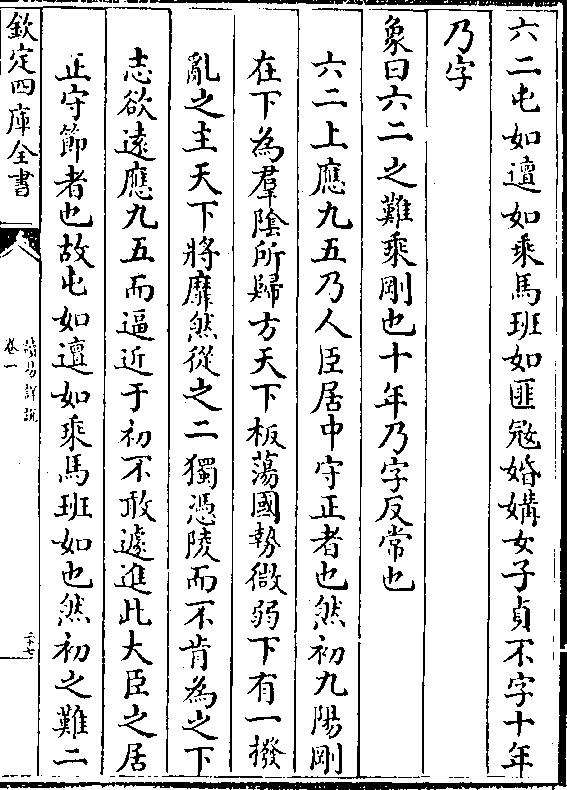 六二屯如邅如乘馬班如匪寇婚媾女子貞不字十年
乃字
象曰六二之難乘剛也十年乃字反常也
六二上應九五乃人臣居中守正者也然初九陽剛
在下為羣陰所歸方天下板蕩國勢微弱下有一撥
亂之主天下將靡然從之二獨憑陵而不肯為之下
志欲遠應九五而逼近于初不敢遽進此大臣之居
正守節者也故屯如邅如乘馬班如也然初之難二
欽定四庫全書
讀易詳說
卷一
二十七